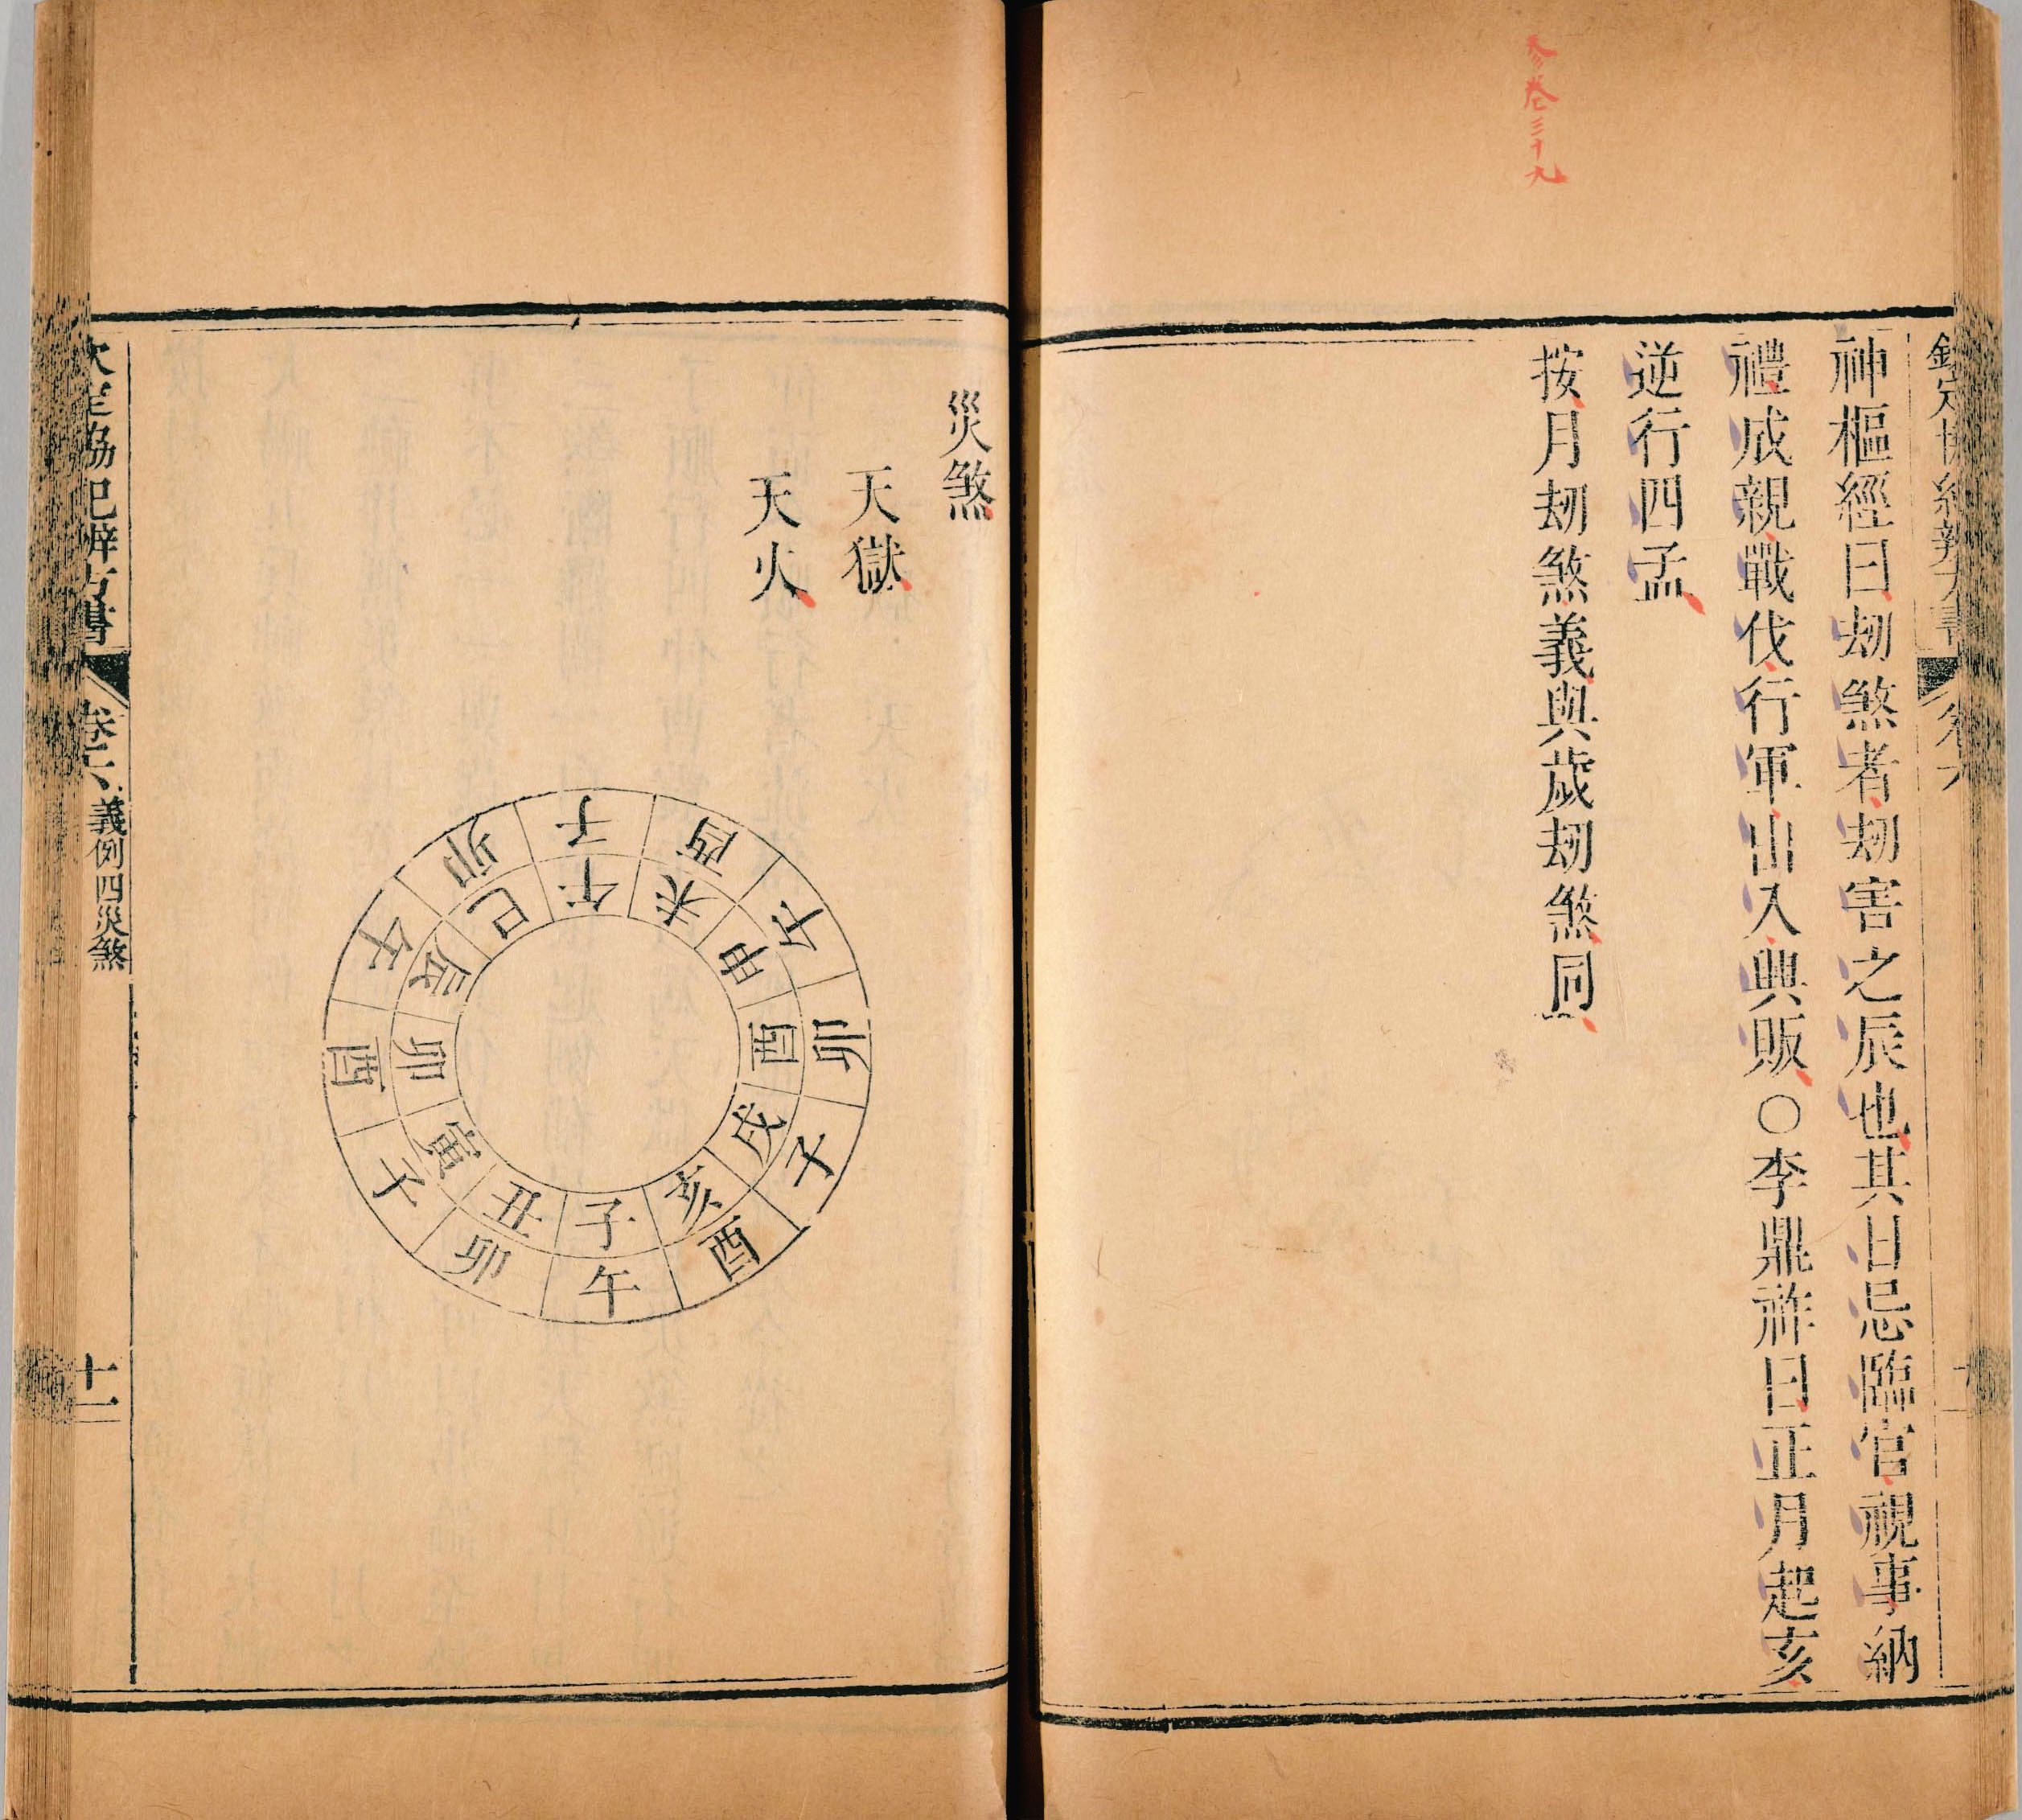 參卷三十九
神樞經曰刼煞者刼害之辰也其日忌臨官視事納
禮成親戰伐行軍出入興販○李鼎祚曰正月起亥
逆行四孟
按月刼煞義與歲刼煞同
災煞
天獄
天火
午 酉 子 卯 午 酉 子 卯 午 酉 子 卯
子 亥 戌 酉 申 未 午 巳 辰 卯 寅 丑
欽定協紀辨方書 卷六 義例四災煞 十一